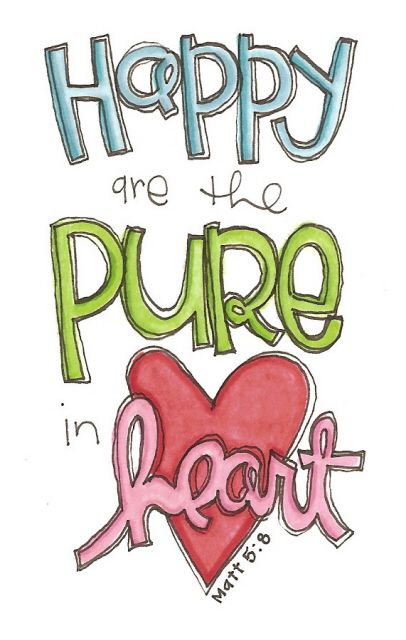 Happy
are the
PURe
in heart
Matt 5:8